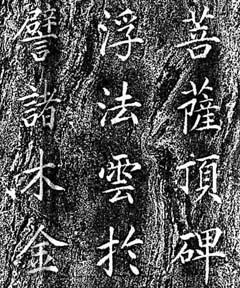 菩薩頂碑
浮法雲於
譬諸木金